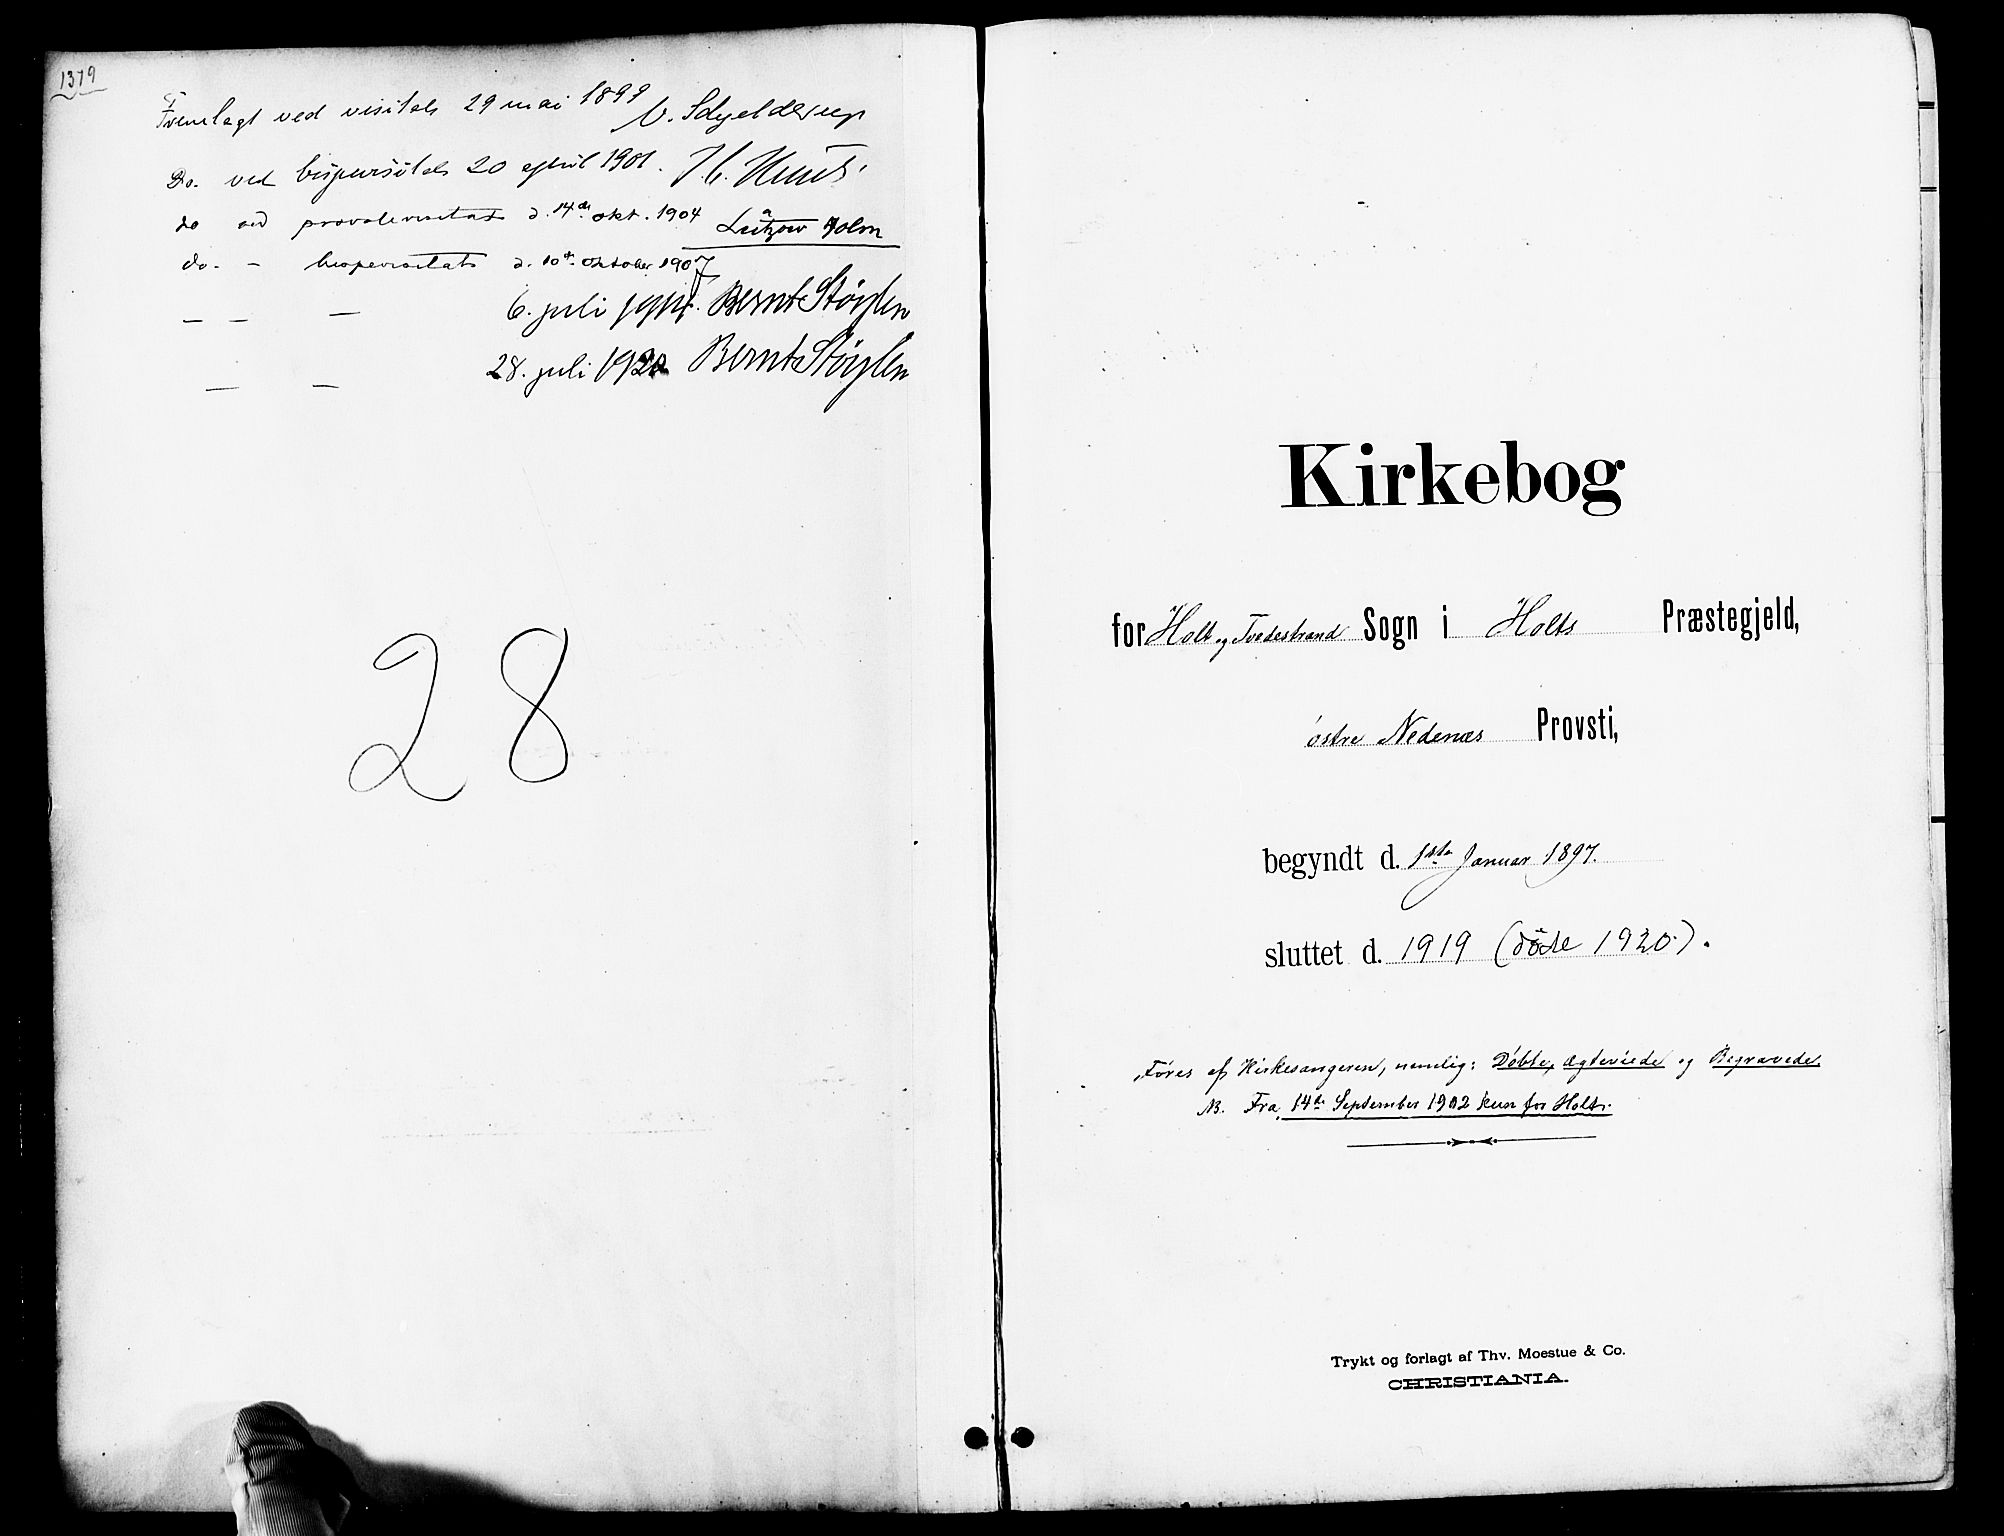 1379
Fremlagt ved visitats 29 mai 1899 V. Schjelderup
Do. ved bispevisitats 20 april 1901. J. C. Heuch.
do ved provstevisitats d. 14de okt. 1904 Lützow Holm
do. - bispevisitats d. 10de oktober 1907
— — — 6. juli Bernt Støylen
— — 28. juli 1920 Bernt Støylen
28
Kirkebog
for Holt og Tvedestrand Sogn i Holts Præstegjeld,
østre Nedenæs Provsti,
begyndt d. 1ste Januar 1897.
sluttet d. 1919 (døde 1920).
Føres af Kirkesangeren, nemlig: Døbte, Ægteviede og Begravede.
NB. Fra 14de September 1902 kun for Holt.
Trykt og forlagt af Thv. Moestue & Co.
CHRISTIANIA.